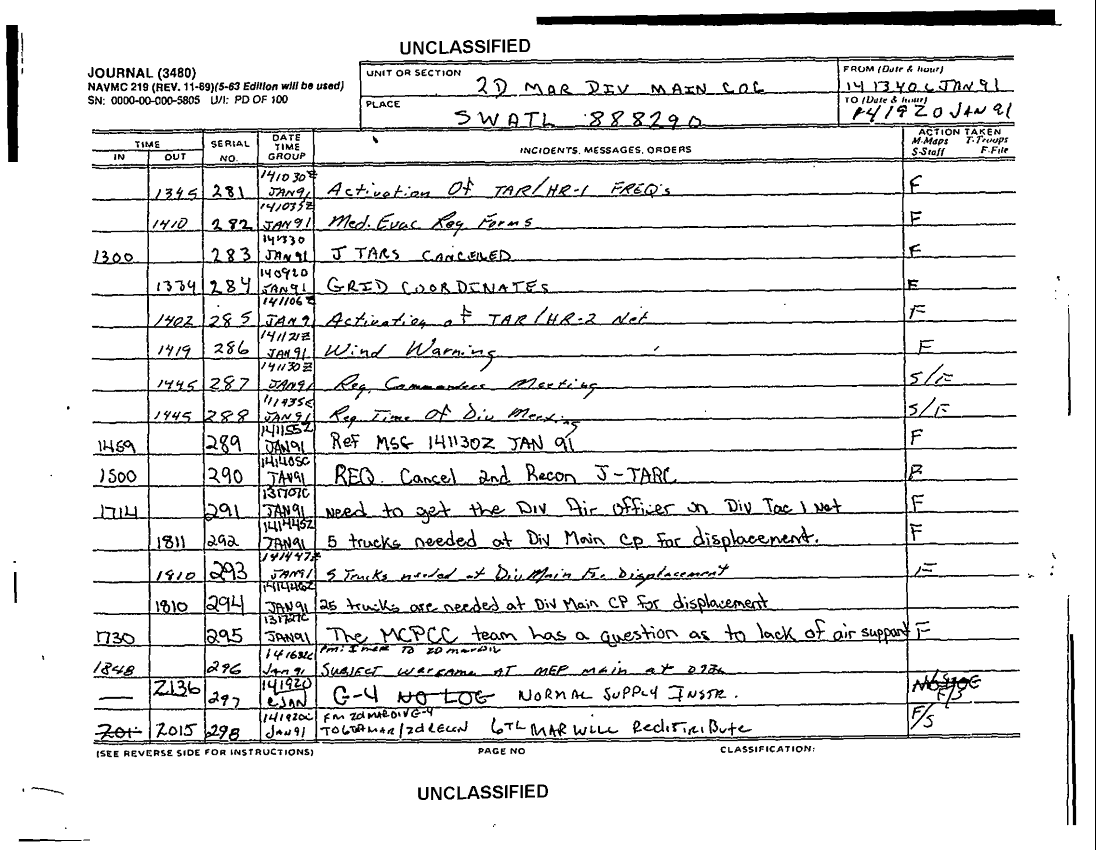 UNCLASSIFIED
JOURNAL (3480)
NAVMC 219 (REV. 11-69)(5-63 Edition will be used)
SN: 0000-00-000-5805 U/I: PD OF 100
UNIT OR SECTION 2D MAR DIV MAIN COC
PLACE SWATL 888290
FROM (Date & hour) 141340C JAN 91
TO (Date & hour) 141920 JAN 91
TIME IN OUT SERIAL NO. DATE TIME GROUP INCIDENTS, MESSAGES, ORDERS ACTION TAKEN M-Maps T-Troops S-Staff F-File
1345 281 141030Z JAN91 Activation Of TAR/HR-1 FREQ's F
1410 282 141035Z JAN91 Med. Evac Req Forms F
1300 283 141330 JAN91 J TARS CANCELLED F
1334 284 140920 JAN91 GRID COORDINATES F
1402 285 141106Z JAN9 Activation of TAR/HR-2 Net F
1419 286 141121Z JAN91 Wind Warning F
1445 287 141130Z JAN91 Req. Commanders Meeting S/F
1445 288 JAN91 Req Time Of Div Meeting S/F
1459 289 141155Z JAN91 Ref MSG 141130Z JAN 91 F
1500 290 141405C JAN91 REQ. Cancel 2nd Recon J-TARC
1714 291 131707C JAN91 need to get the Div Air officer on Div Tac 1 Net F
1811 292 141445Z JAN91 5 trucks needed at Div Main CP for displacement. F
1810 293 141447Z JAN91 5 Trucks needed at Div Main For Displacement F
1810 294 JAN91 25 trucks are needed at Div Main CP for displacement
1730 295 131727C JAN91 The MCPCC team has a question as to lack of air support F
1848 296 141632C Jan 91 FM: I MEF TO 2D MARDIV
SUBJECT WARGAME AT MEF MAIN at
2136 297 141920 C JAN G-4 NO LOG NORMAL SUPPLY INSTR. F/S
201 2015 298 141920C Jan91 FM 2d MARDIV G-4
TO 6TH MAR/2d RECON 6TH MAR WILL Redistribute F/S
(SEE REVERSE SIDE FOR INSTRUCTIONS) PAGE NO CLASSIFICATION:
UNCLASSIFIED